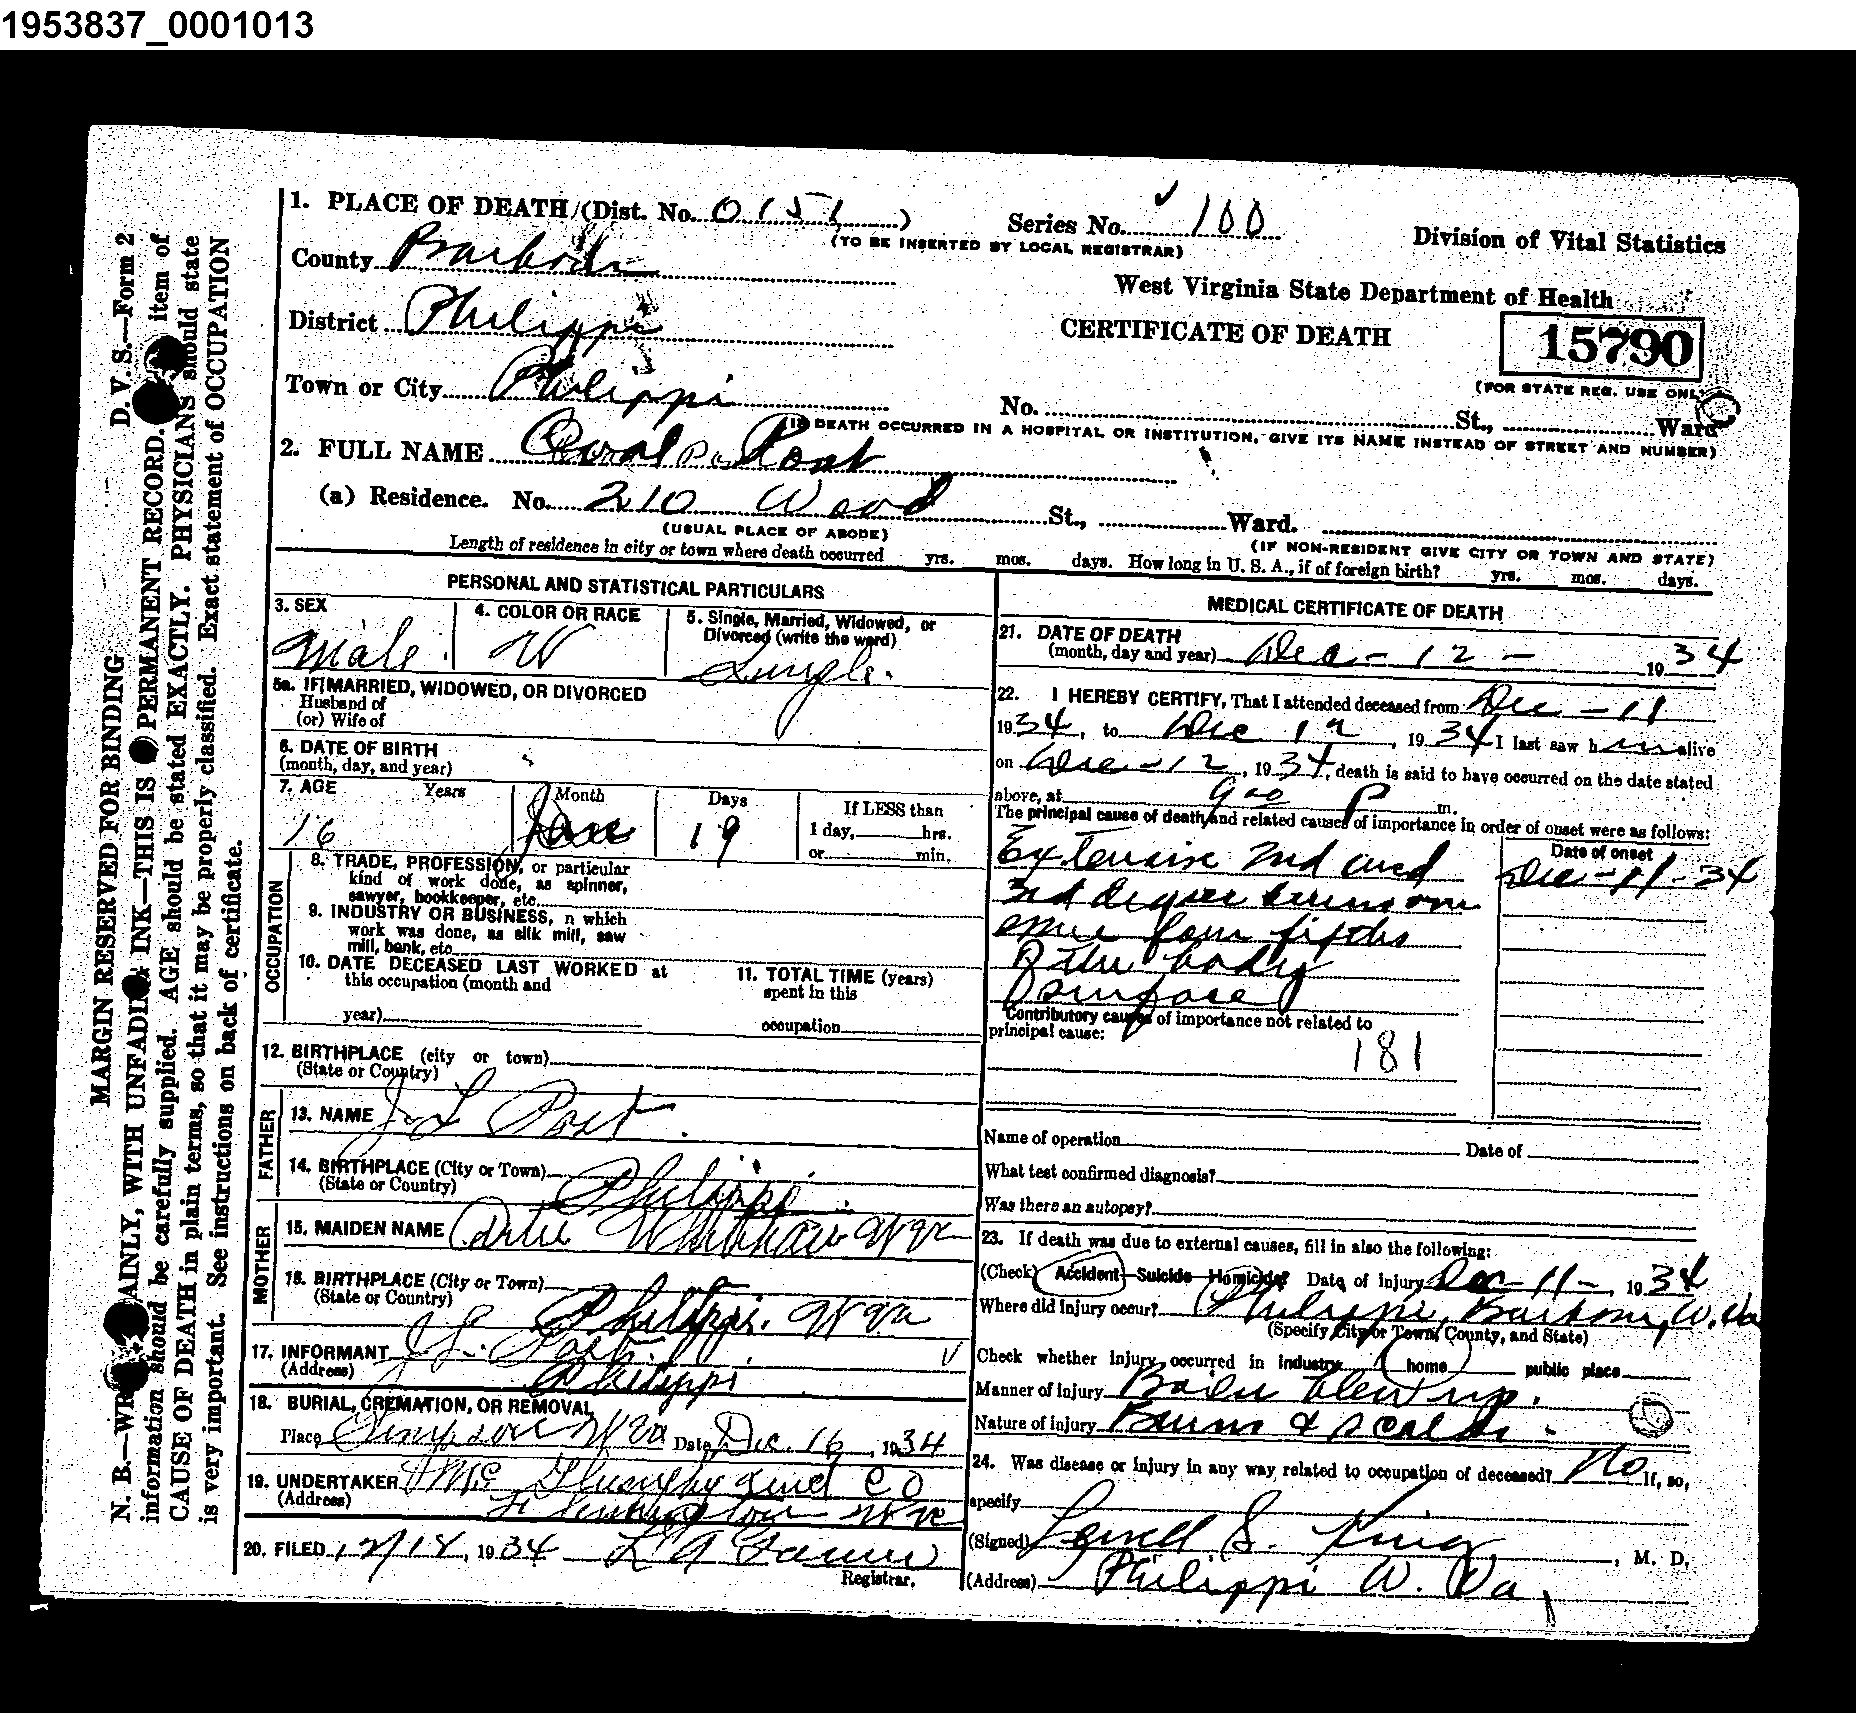 1953837_0001013
D. V. S.—Form 2
MARGIN RESERVED FOR BINDING
AINLY, WITH UNFADING INK—THIS IS PERMANENT RECORD. item of
information should be carefully supplied. AGE should be stated EXACTLY. PHYSICIANS should state
CAUSE OF DEATH in plain terms, so that it may be properly classified. Exact statement of OCCUPATION
is very important. See instructions on back of certificate.
1. PLACE OF DEATH (Dist. No. 0151)
Series No. 100
(TO BE INSERTED BY LOCAL REGISTRAR)
Division of Vital Statistics
County Barbour
West Virginia State Department of Health
District Philippi
CERTIFICATE OF DEATH
15790
(FOR STATE REG. USE ONLY
Town or City Philippi
No. St., Ward
(IF DEATH OCCURRED IN A HOSPITAL OR INSTITUTION, GIVE ITS NAME INSTEAD OF STREET AND NUMBER)
2. FULL NAME Post
(a) Residence. No. 210 Wood St., Ward.
(USUAL PLACE OF ABODE)
(IF NON-RESIDENT GIVE CITY OR TOWN AND STATE)
Length of residence in city or town where death occurred yrs. mos. days. How long in U. S. A., if of foreign birth? yrs. mos. days.
PERSONAL AND STATISTICAL PARTICULARS
3. SEX
Male
4. COLOR OR RACE
W
5. Single, Married, Widowed, or
Divorced (write the word)
Single.
5a. IF MARRIED, WIDOWED, OR DIVORCED
Husband of
(or) Wife of
6. DATE OF BIRTH
(month, day, and year)
7. AGE Years Month Days If LESS than
16 19 1 day, hrs.
or min.
OCCUPATION
8. TRADE, PROFESSION, or particular
kind of work done, as spinner,
sawyer, bookkeeper, etc.
9. INDUSTRY OR BUSINESS, n which
work was done, as silk mill, saw
mill, bank, etc.
10. DATE DECEASED LAST WORKED at
this occupation (month and
year)
11. TOTAL TIME (years)
spent in this
occupation
12. BIRTHPLACE (city or town)
(State or Country)
FATHER
13. NAME J L Post.
14. BIRTHPLACE (City or Town)
(State or Country) Philippi
MOTHER
15. MAIDEN NAME W Va
16. BIRTHPLACE (City or Town)
(State or Country) Philippi. W Va
17. INFORMANT J L. Post.
(Address) Philippi
18. BURIAL, CREMATION, OR REMOVAL
Place Simpson W Va Date Dec. 16, 1934
19. UNDERTAKER Co
(Address)
20. FILED 12/18, 1934 L A
Registrar.
MEDICAL CERTIFICATE OF DEATH
21. DATE OF DEATH
(month, day and year) Dec - 12 - 1934
22. I HEREBY CERTIFY, That I attended deceased from Dec - 11
1934, to Dec 12, 1934 I last saw him alive
on Dec - 12, 1934, death is said to have occurred on the date stated
above, at 9 00 P m.
The principal cause of death and related causes of importance in order of onset were as follows:
Date of onset
Extensive 2nd and Dec - 11 - 34
3rd degree burns
over four fifths
of the body
surface
Contributory causes of importance not related to
principal cause:
181
Name of operation Date of
What test confirmed diagnosis?
Was there an autopsy?
23. If death was due to external causes, fill in also the following:
(Check) Accident—Suicide—Homicide? Date of injury Dec - 11 -, 1934
Where did injury occur? Philippi, Barbour, W. Va
(Specify City or Town, County, and State)
Check whether injury occurred in industry home public place
Manner of injury Boiler blew up.
Nature of injury Burns & scalds -
24. Was disease or injury in any way related to occupation of deceased? No If, so,
specify
(Signed) S. King, M. D.
(Address) Philippi W. Va